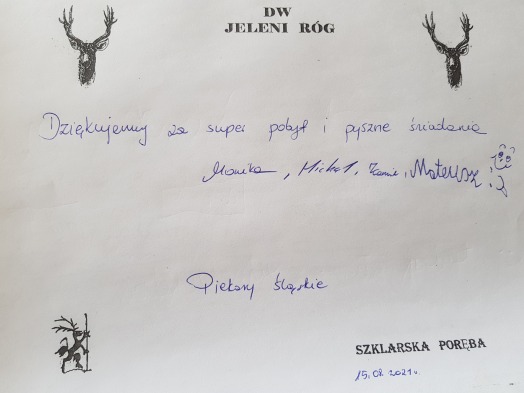 DW
JELENI RÓG
Dziękujemy za super pobyt i pyszne śniadania
Monika, Michał, Kamil, Mateusz
Piekary Śląskie
SZKLARSKA PORĘBA
15.08.2021r.